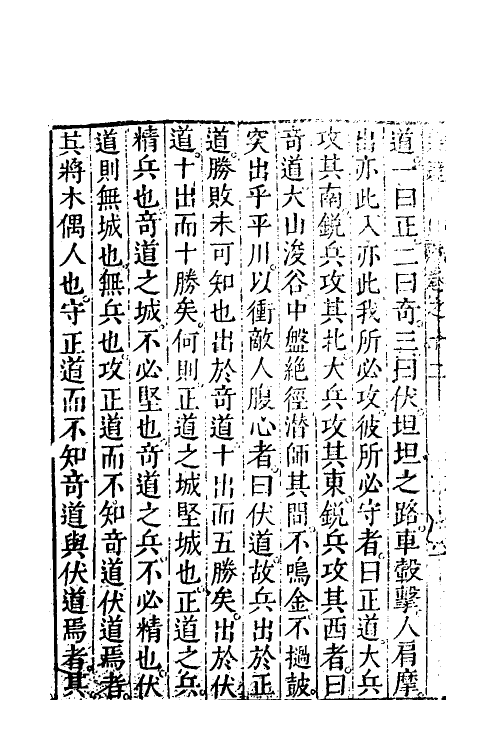 道一曰正二曰奇三曰伏坦坦之路車轂擊人肩摩
出亦此入亦此我所必攻彼所必守者曰正道大兵
攻其南銳兵攻其北大兵攻其東銳兵攻其西者曰
奇道大山浚谷中盤絕徑潛師其間不鳴金不撾鼓
突出乎平川以衝敵人腹心者曰伏道故兵出於正
道勝敗未可知也出於奇道十出而五勝矣出於伏
道十出而十勝矣何則正道之城堅城也正道之兵
精兵也奇道之城不必堅也奇道之兵不必精也伏
道則無城也無兵也攻正道而不知奇道伏道焉者
其將木偶人也守正道而不知奇道與伏道焉者其